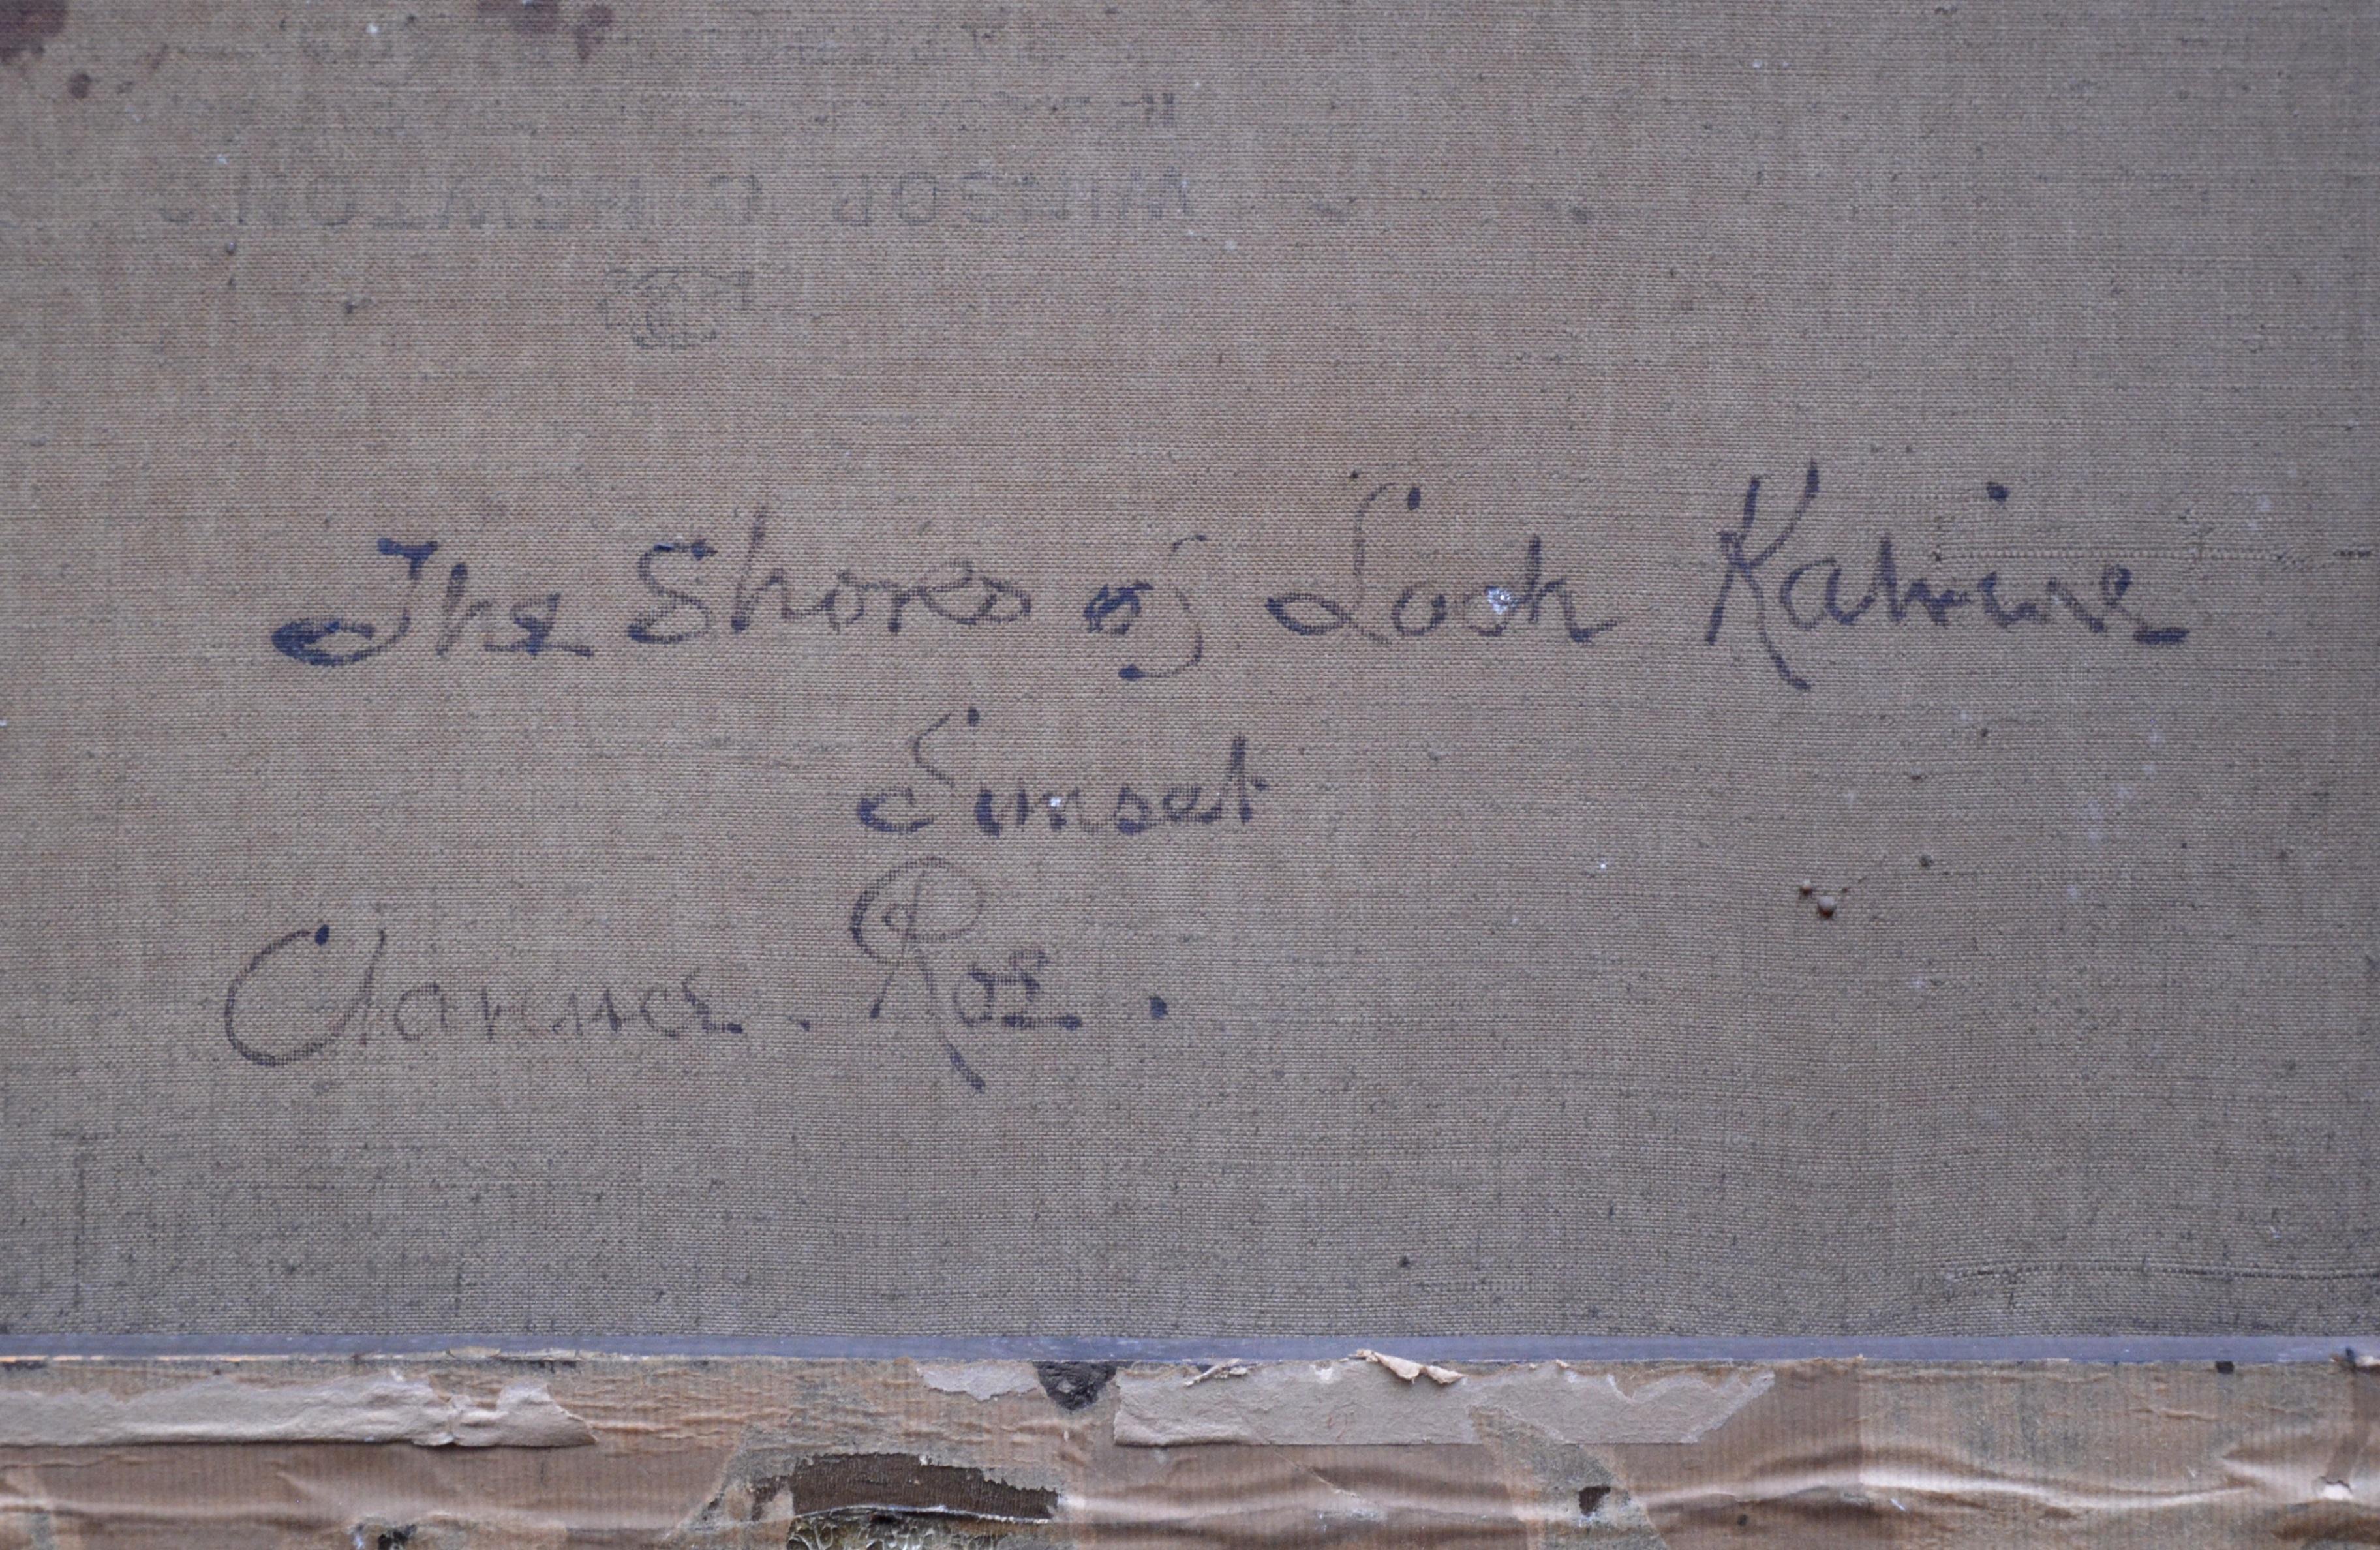 WINSOR & NEWTON'S
The Shores of Loch Katrine
Sunset
Clarence. Roe.